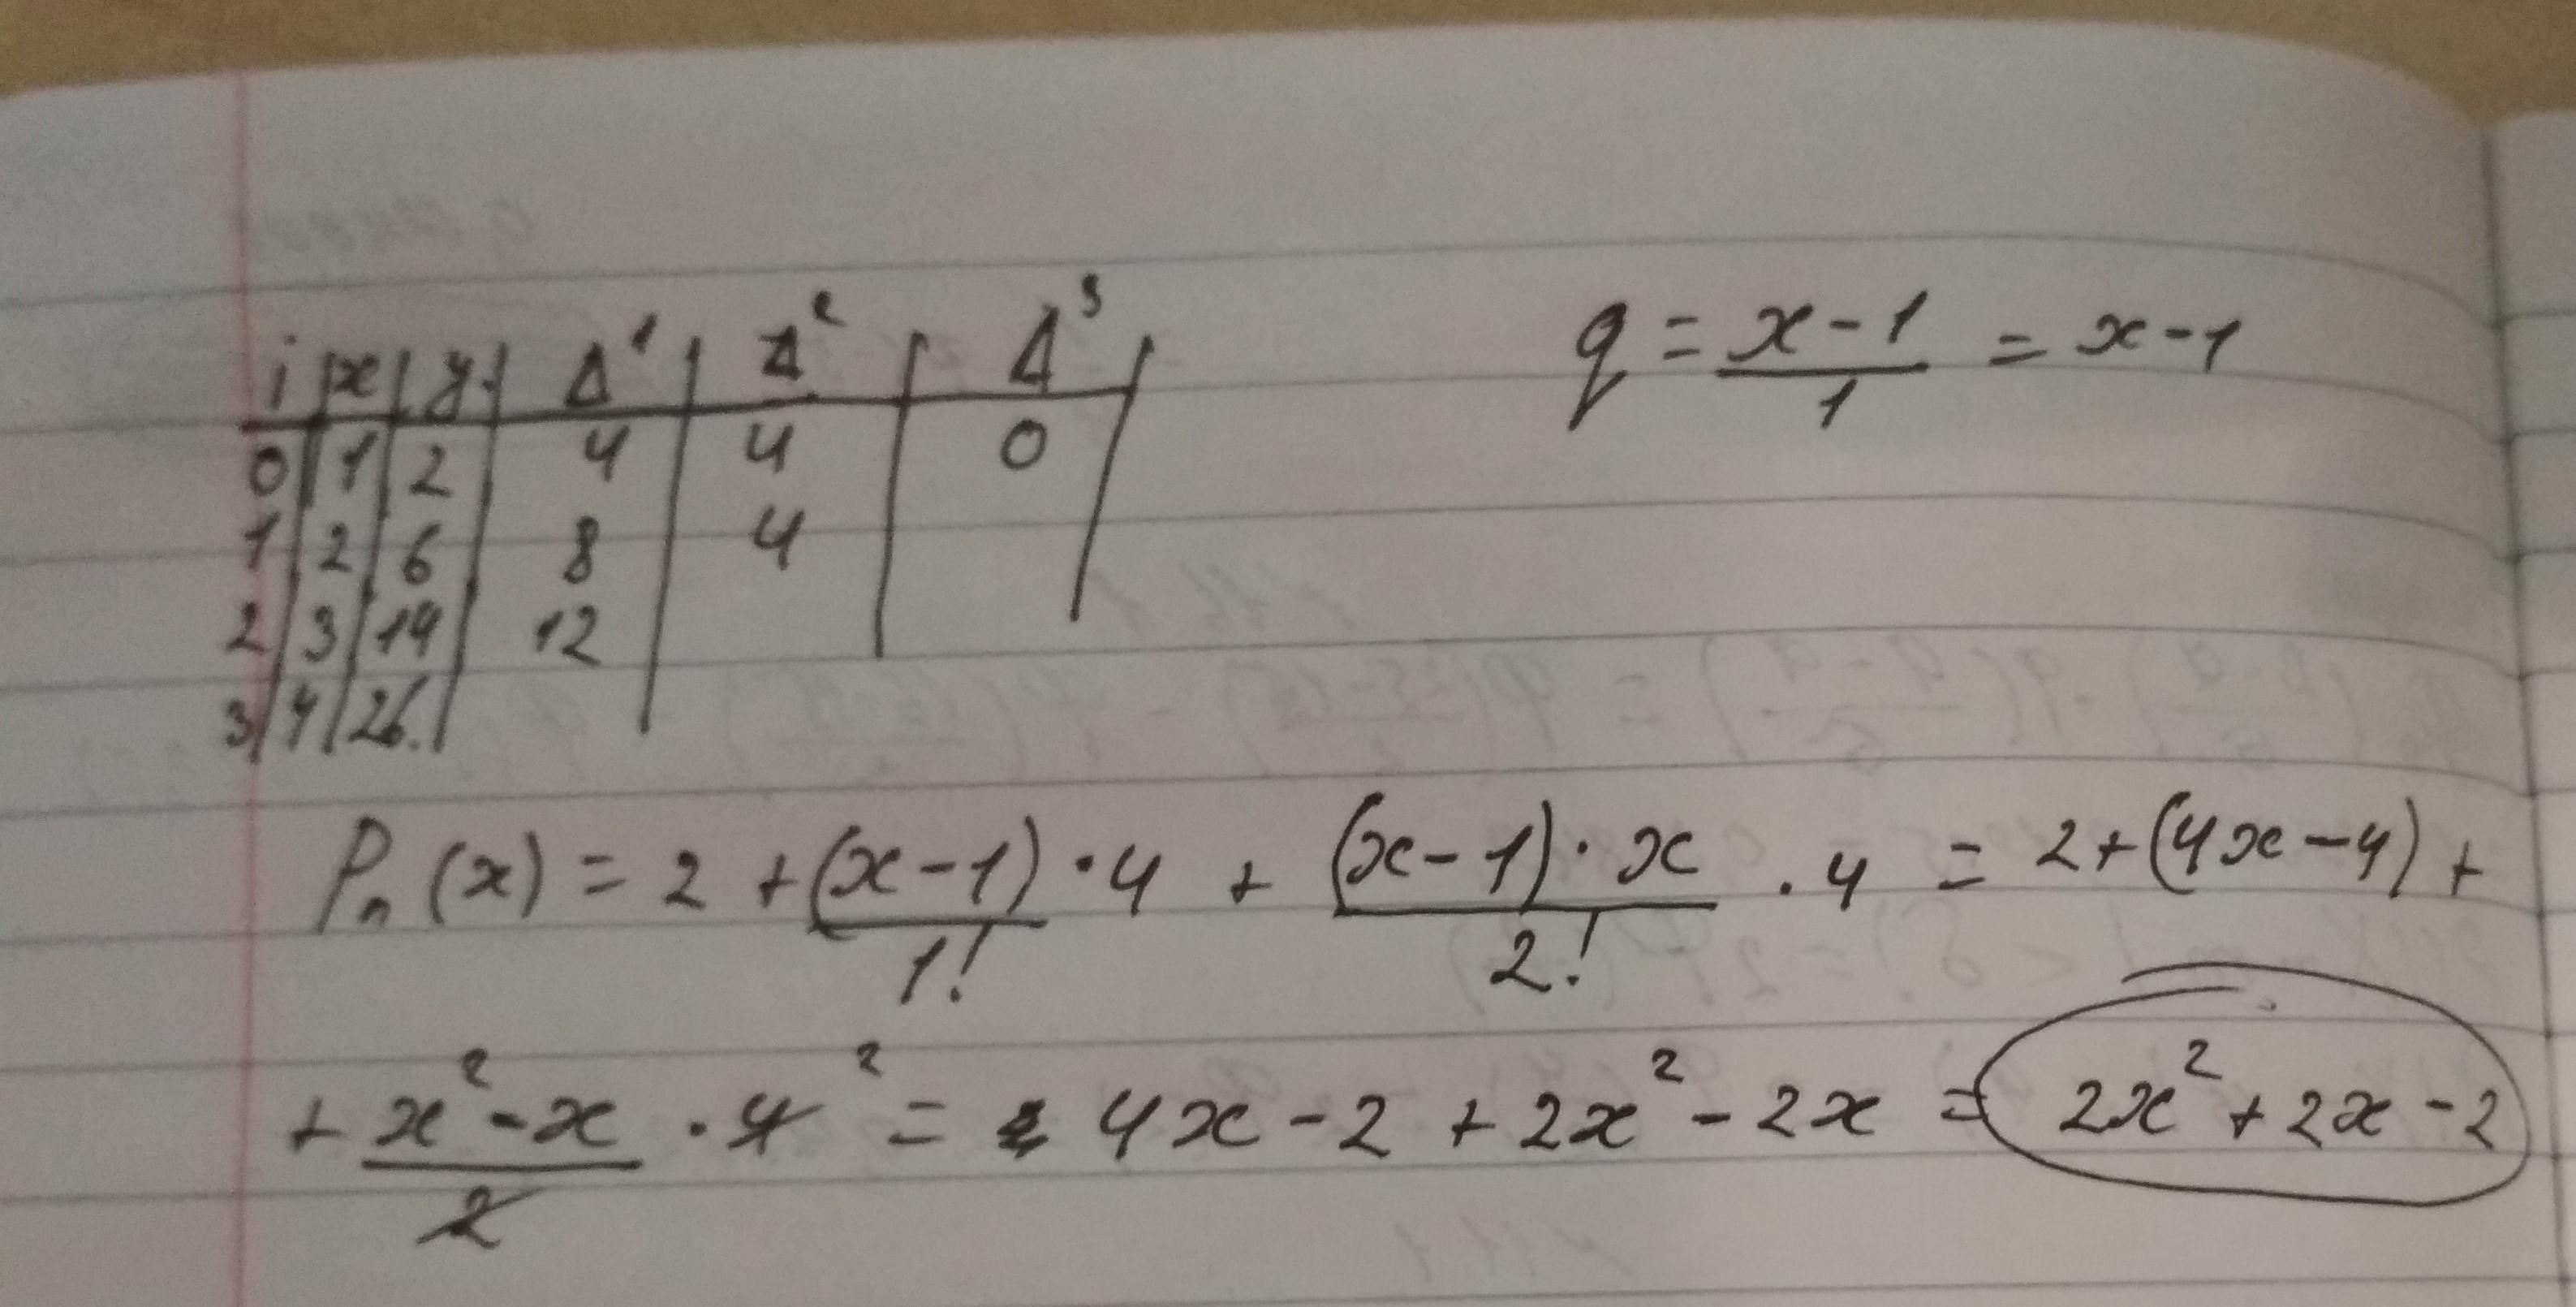 i | x | y | Δ¹ | Δ² | Δ³
0 | 1 | 2 | 4 | 4 | 0
1 | 2 | 6 | 8 | 4
2 | 3 | 14 | 12
3 | 4 | 26
q = (x-1)/1 = x-1
Pₙ(x) = 2 + (x-1)/1! · 4 + (x-1)·x/2! · 4 = 2+(4x-4)+
+ (x²-x)/2 · 4² = 4x-2+2x²-2x = 2x²+2x-2